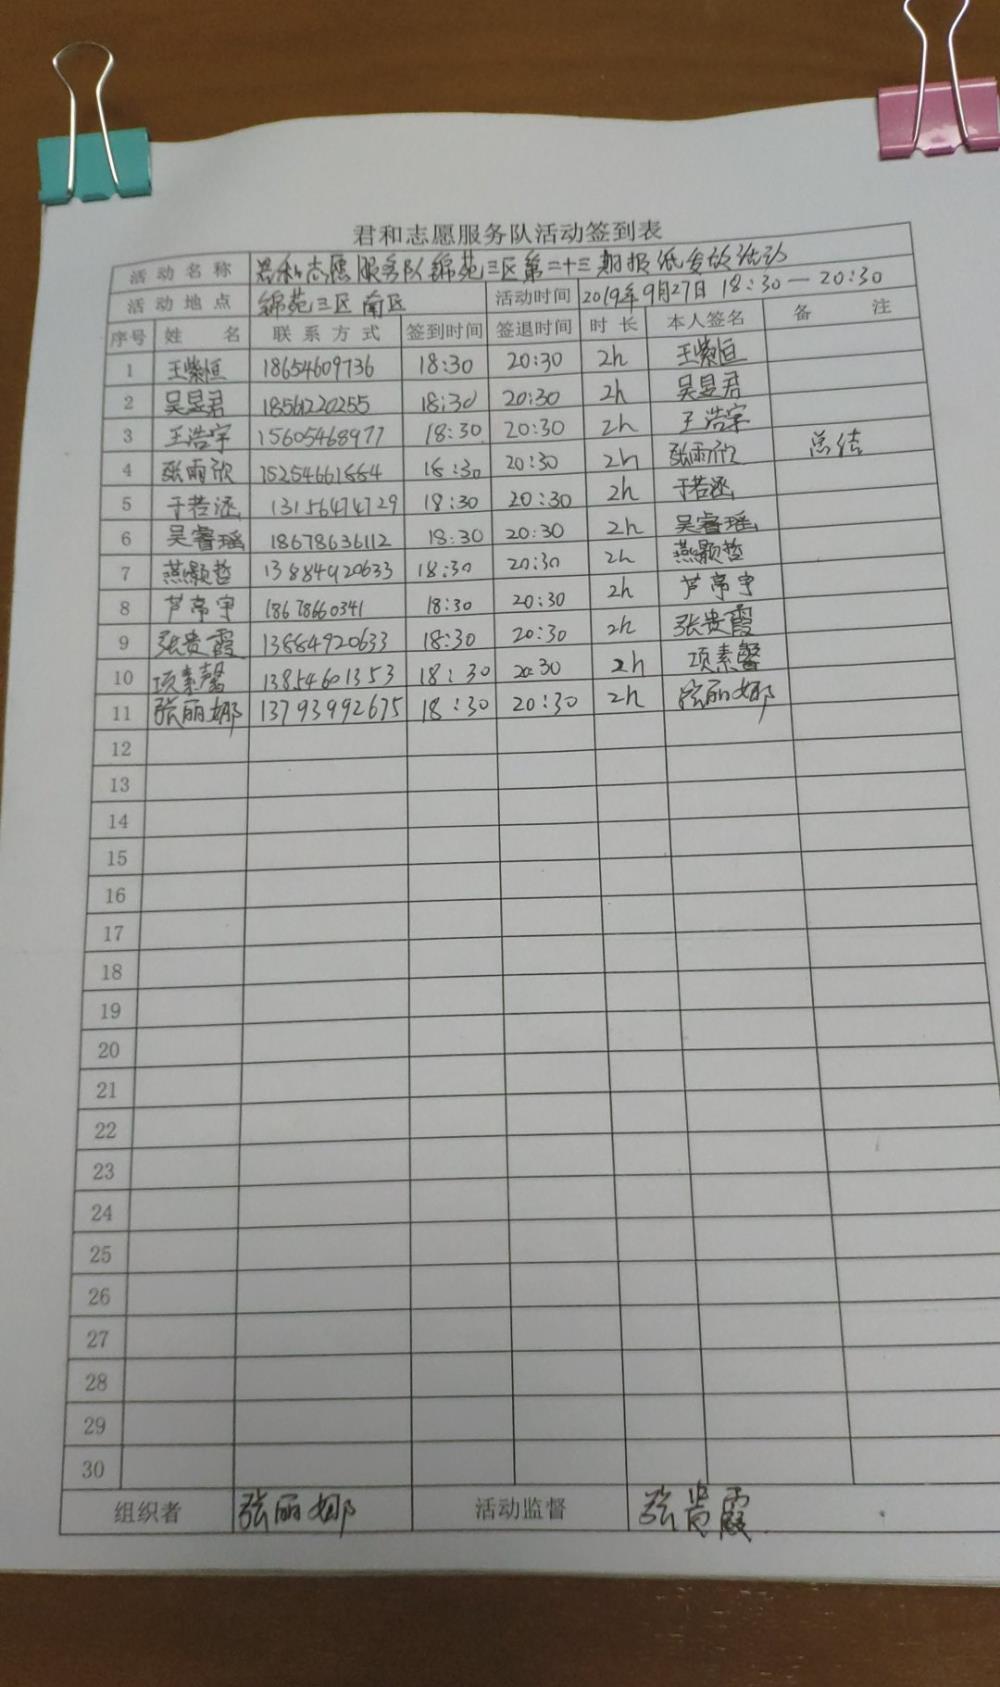 君和志愿服务队活动签到表
活动名称 君和志愿服务队锦苑三区第二十三期报纸发放活动
活动地点 锦苑三区南区 活动时间 2019年9月27日 18:30—20:30
序号 姓名 联系方式 签到时间 签退时间 时长 本人签名 备注
1 王紫恒 18654609736 18:30 20:30 2h 王紫恒
2 吴昱君 18561220255 18:30 20:30 2h 吴昱君
3 王浩宇 15605468977 18:30 20:30 2h 王浩宇
4 张雨欣 15254661884 18:30 20:30 2h 张雨欣 总结
5 于若涵 13156474729 18:30 20:30 2h 于若涵
6 吴睿瑶 18678636112 18:30 20:30 2h 吴睿瑶
7 燕颢哲 13884920633 18:30 20:30 2h 燕颢哲
8 芦常宇 18678660341 18:30 20:30 2h 芦常宇
9 张贵霞 13884920633 18:30 20:30 2h 张贵霞
10 项素馨 13854601353 18:30 20:30 2h 项素馨
11 张丽娜 13793992675 18:30 20:30 2h 张丽娜
12
13
14
15
16
17
18
19
20
21
22
23
24
25
26
27
28
29
30
组织者 张丽娜 活动监督 张贵霞